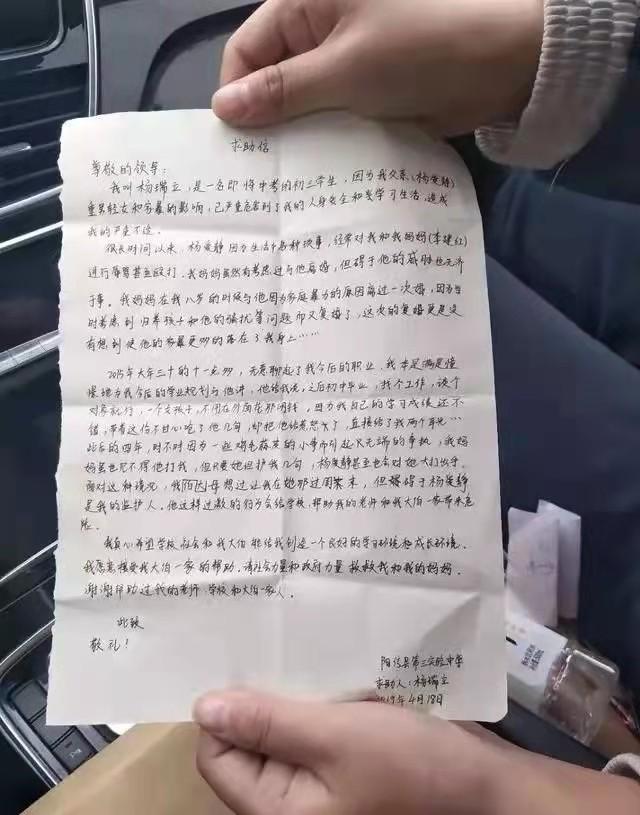 求助信
尊敬的领导：
我叫杨瑞立，是一名即将中考的初三学生，因为我父亲（杨爱静）
重男轻女和家暴的影响，已严重危害到了我的人身安全和学习生活，造成
我的严重不适。
很长时间以来，杨爱静因为生活中各种琐事，经常对我和我妈妈（李建红）
进行辱骂甚至殴打。我妈妈虽然有考虑过与他离婚，但碍于他的威胁也无济
于事。我妈妈在我八岁的时候与他因为家庭暴力的原因离过一次婚，因为当
时考虑到归养孩子和他的骚扰等问题而又复婚了，这次的复婚更是没
有想到使他的家暴更多的落在了我身上……
2015年大年三十的十一点多，无意聊起了我今后的职业，我本是满是憧
憬地为我今后的学业规划与他讲，他给我说，之后初中毕业，找个工作，谈个
对象就行，一个女孩子，不用在外面花那闲钱，因为我自己的学习成绩还不
错，带着这份不甘心吃了他几句，却把他给惹怒了，直接给了我两个耳光…
此后的四年，时不时因为一些鸡毛蒜皮的小事而引起天无端的争执，我妈
妈虽也见不得他打我，但只要她但护我几句，杨爱静甚至也会对她大打出手。
面对这种情况，我伯母想过让我在她那过周末，但碍得于杨爱静
是我的监护人，他这样过激的行为会给学校、帮助我的老师和我大伯一家带来危
险。
我真心希望学校、社会和我大伯能给我创造一个良好的学习环境和成长环境，
我愿意接受我大伯一家的帮助，请社会力量和政府力量救救我和我的妈妈。
谢谢帮助过我的老师、学校和大伯一家人。
此致
敬礼！
阳信县第三实验中学
求助人：杨瑞立
2019年4月18日